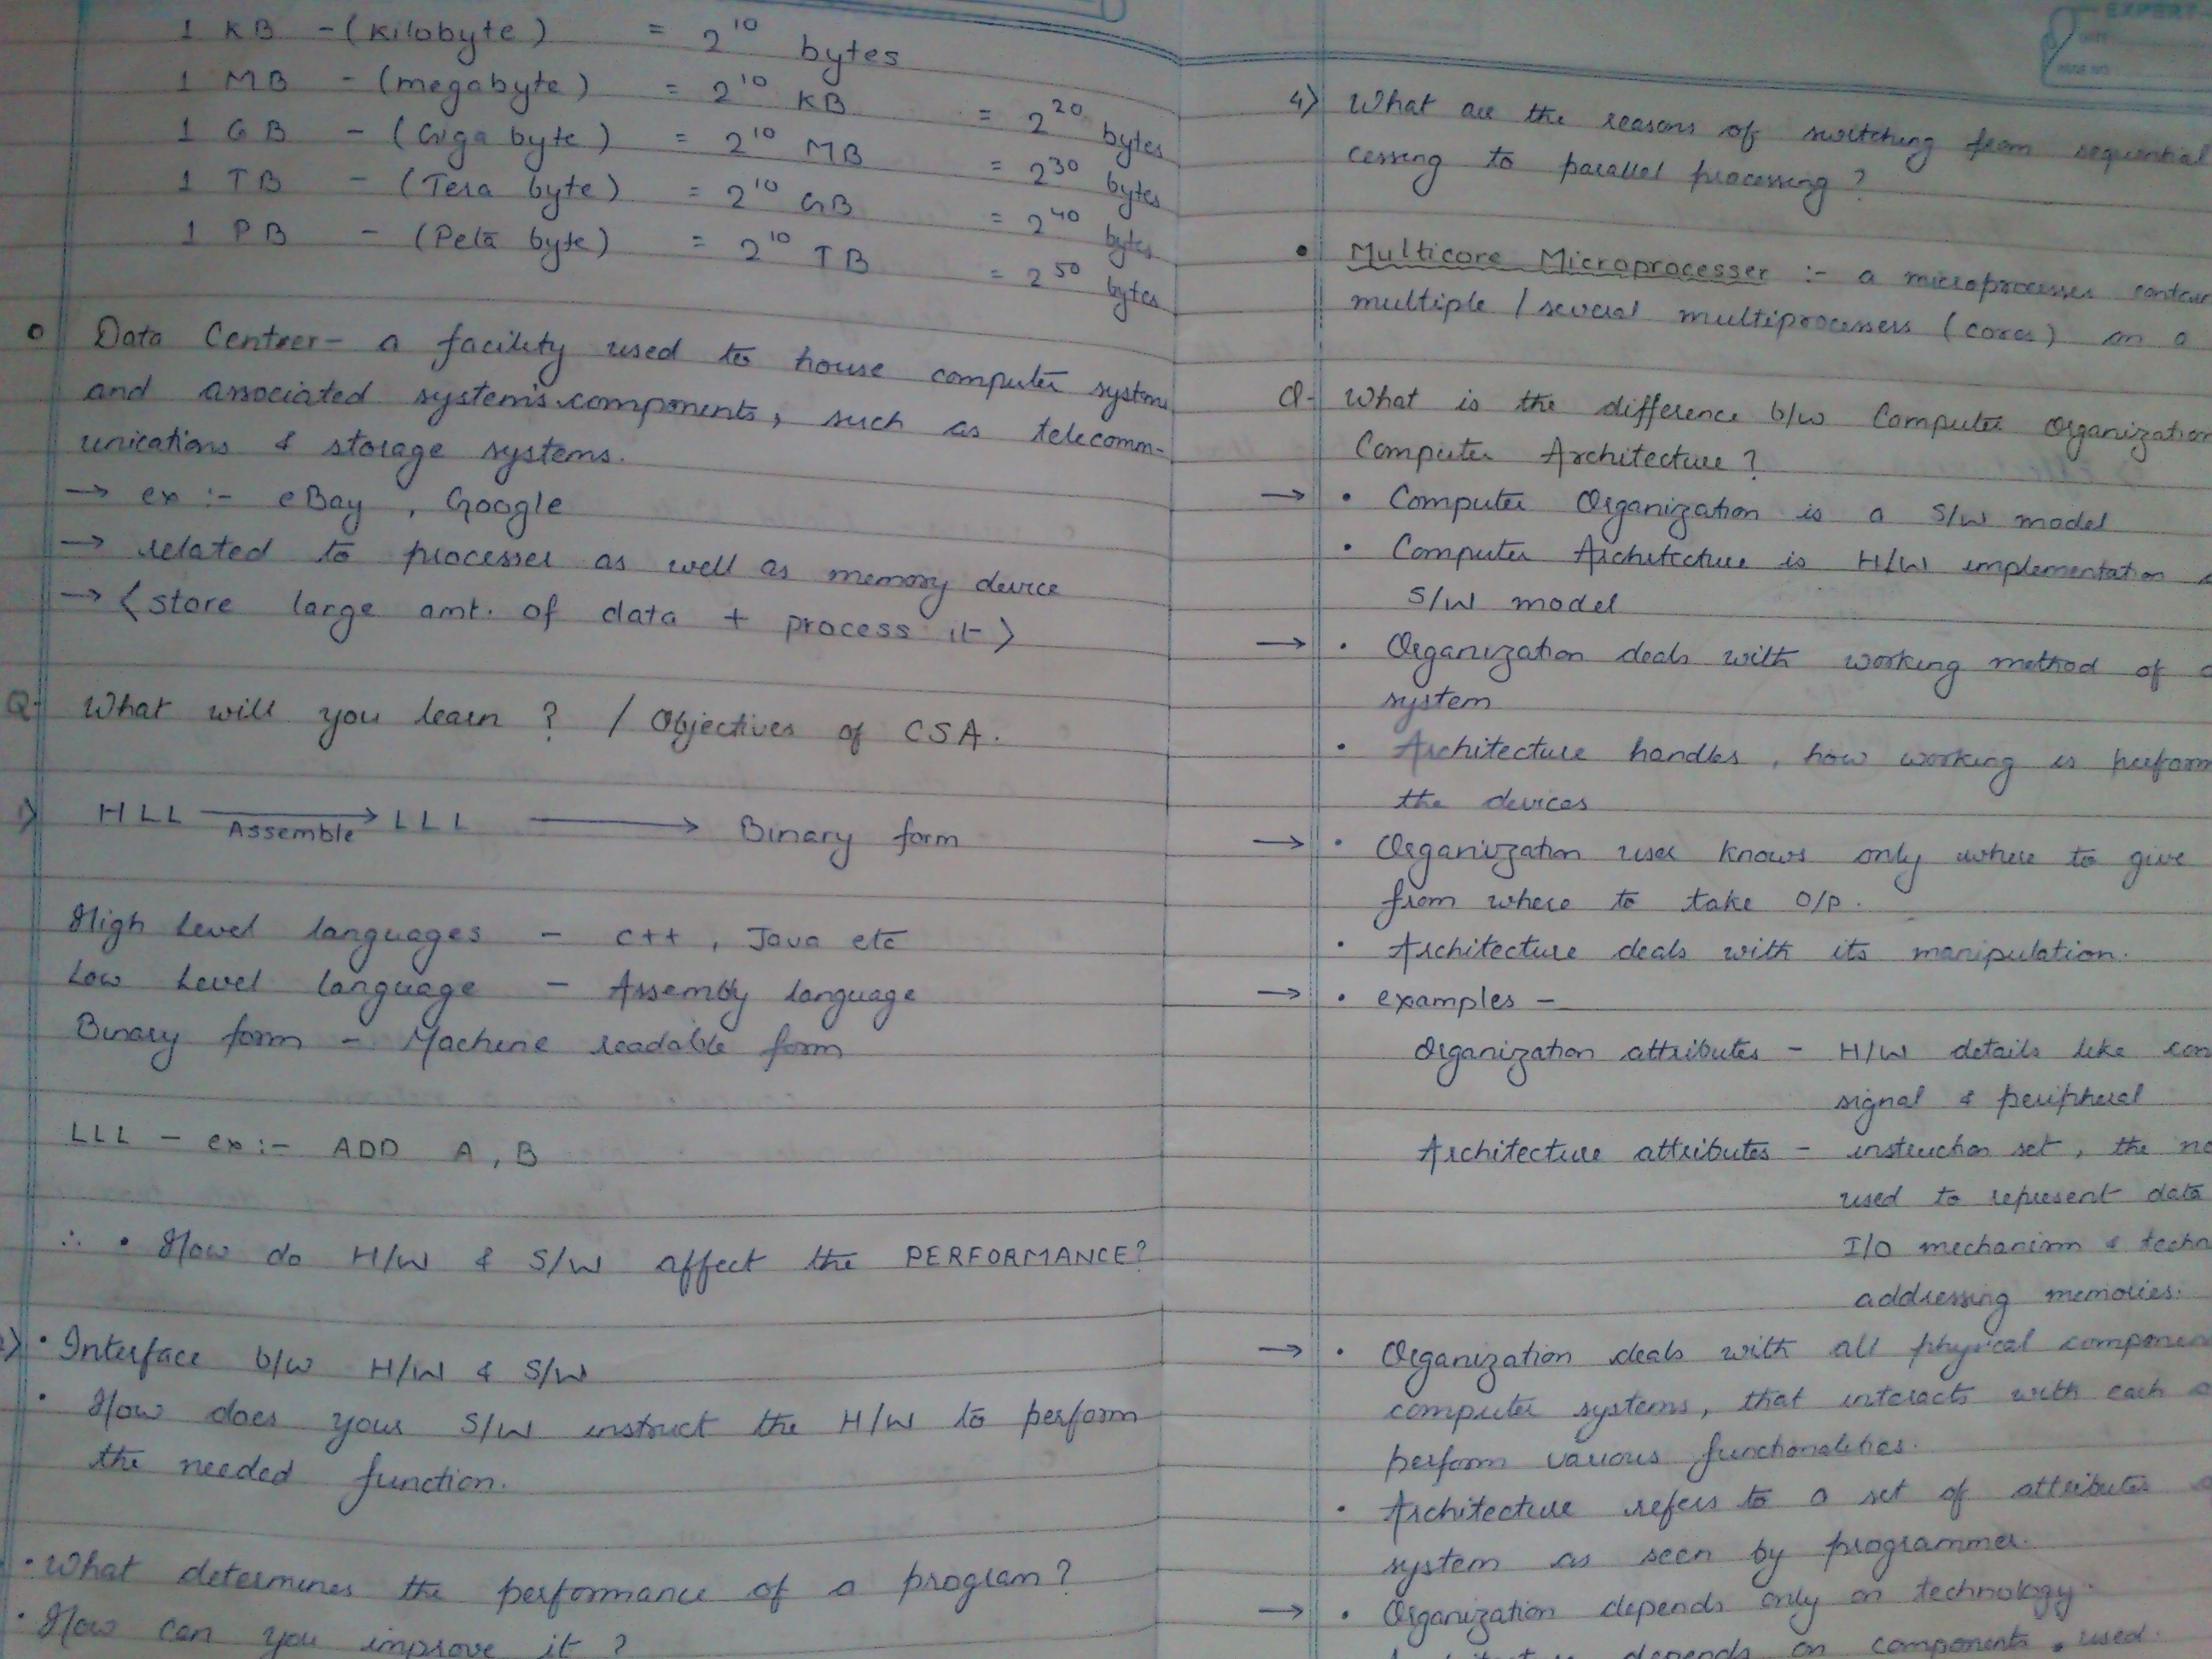 1 KB - (Kilobyte) = 2^10 bytes
1 MB - (megabyte) = 2^10 KB = 2^20 bytes
1 GB - (Giga byte) = 2^10 MB = 2^30 bytes
1 TB - (Tera byte) = 2^10 GB = 2^40 bytes
1 PB - (Peta byte) = 2^10 TB = 2^50 bytes
Data Center - a facility used to house computer systems
and associated system's components, such as telecomm-
unications & storage systems.
→ ex :- eBay , Google
→ related to processer as well as memory device
→ <store large amt. of data + process it>
Q- What will you learn ? / Objectives of CSA.
1> HLL → Assemble LLL → Binary form
High Level languages - C++ , Java etc
Low Level language - Assembly language
Binary form - Machine readable form
LLL - ex :- ADD A , B
∴ • How do H/W & S/W affect the PERFORMANCE?
• Interface b/w H/W & S/W
• How does your S/W instruct the H/W to perform
the needed function.
• What determines the performance of a program ?
• How can you improve it ?
EXPERT
PAGE NO.
4> What are the reasons of switching from sequential
cessing to parallel processing ?
• Multicore Microprocesser :- a microprocesser
multiple / several multiprocessers (cores) on a
Q- What is the difference b/w Computer Organization
Computer Architecture ?
→ • Computer Organization is a S/W model
• Computer Architecture is H/W implementation
S/W model
→ • Organization deals with working method of
system
• Architecture handles , how working is perform
the devices
→ • Organization user knows only where to give
from where to take O/P.
• Architecture deals with its manipulation.
→ • examples -
Organization attributes - H/W details like con
signal & peripheral
Architecture attributes - instruction set , the no
used to represent data
I/O mechanism & techn
addressing memories.
→ • Organization deals with all physical componen
computer systems, that interacts with each
perform various functionalities.
• Architecture refers to a set of attributes
system as seen by programmer.
→ • Organization depends only on technology.
depends on components used.